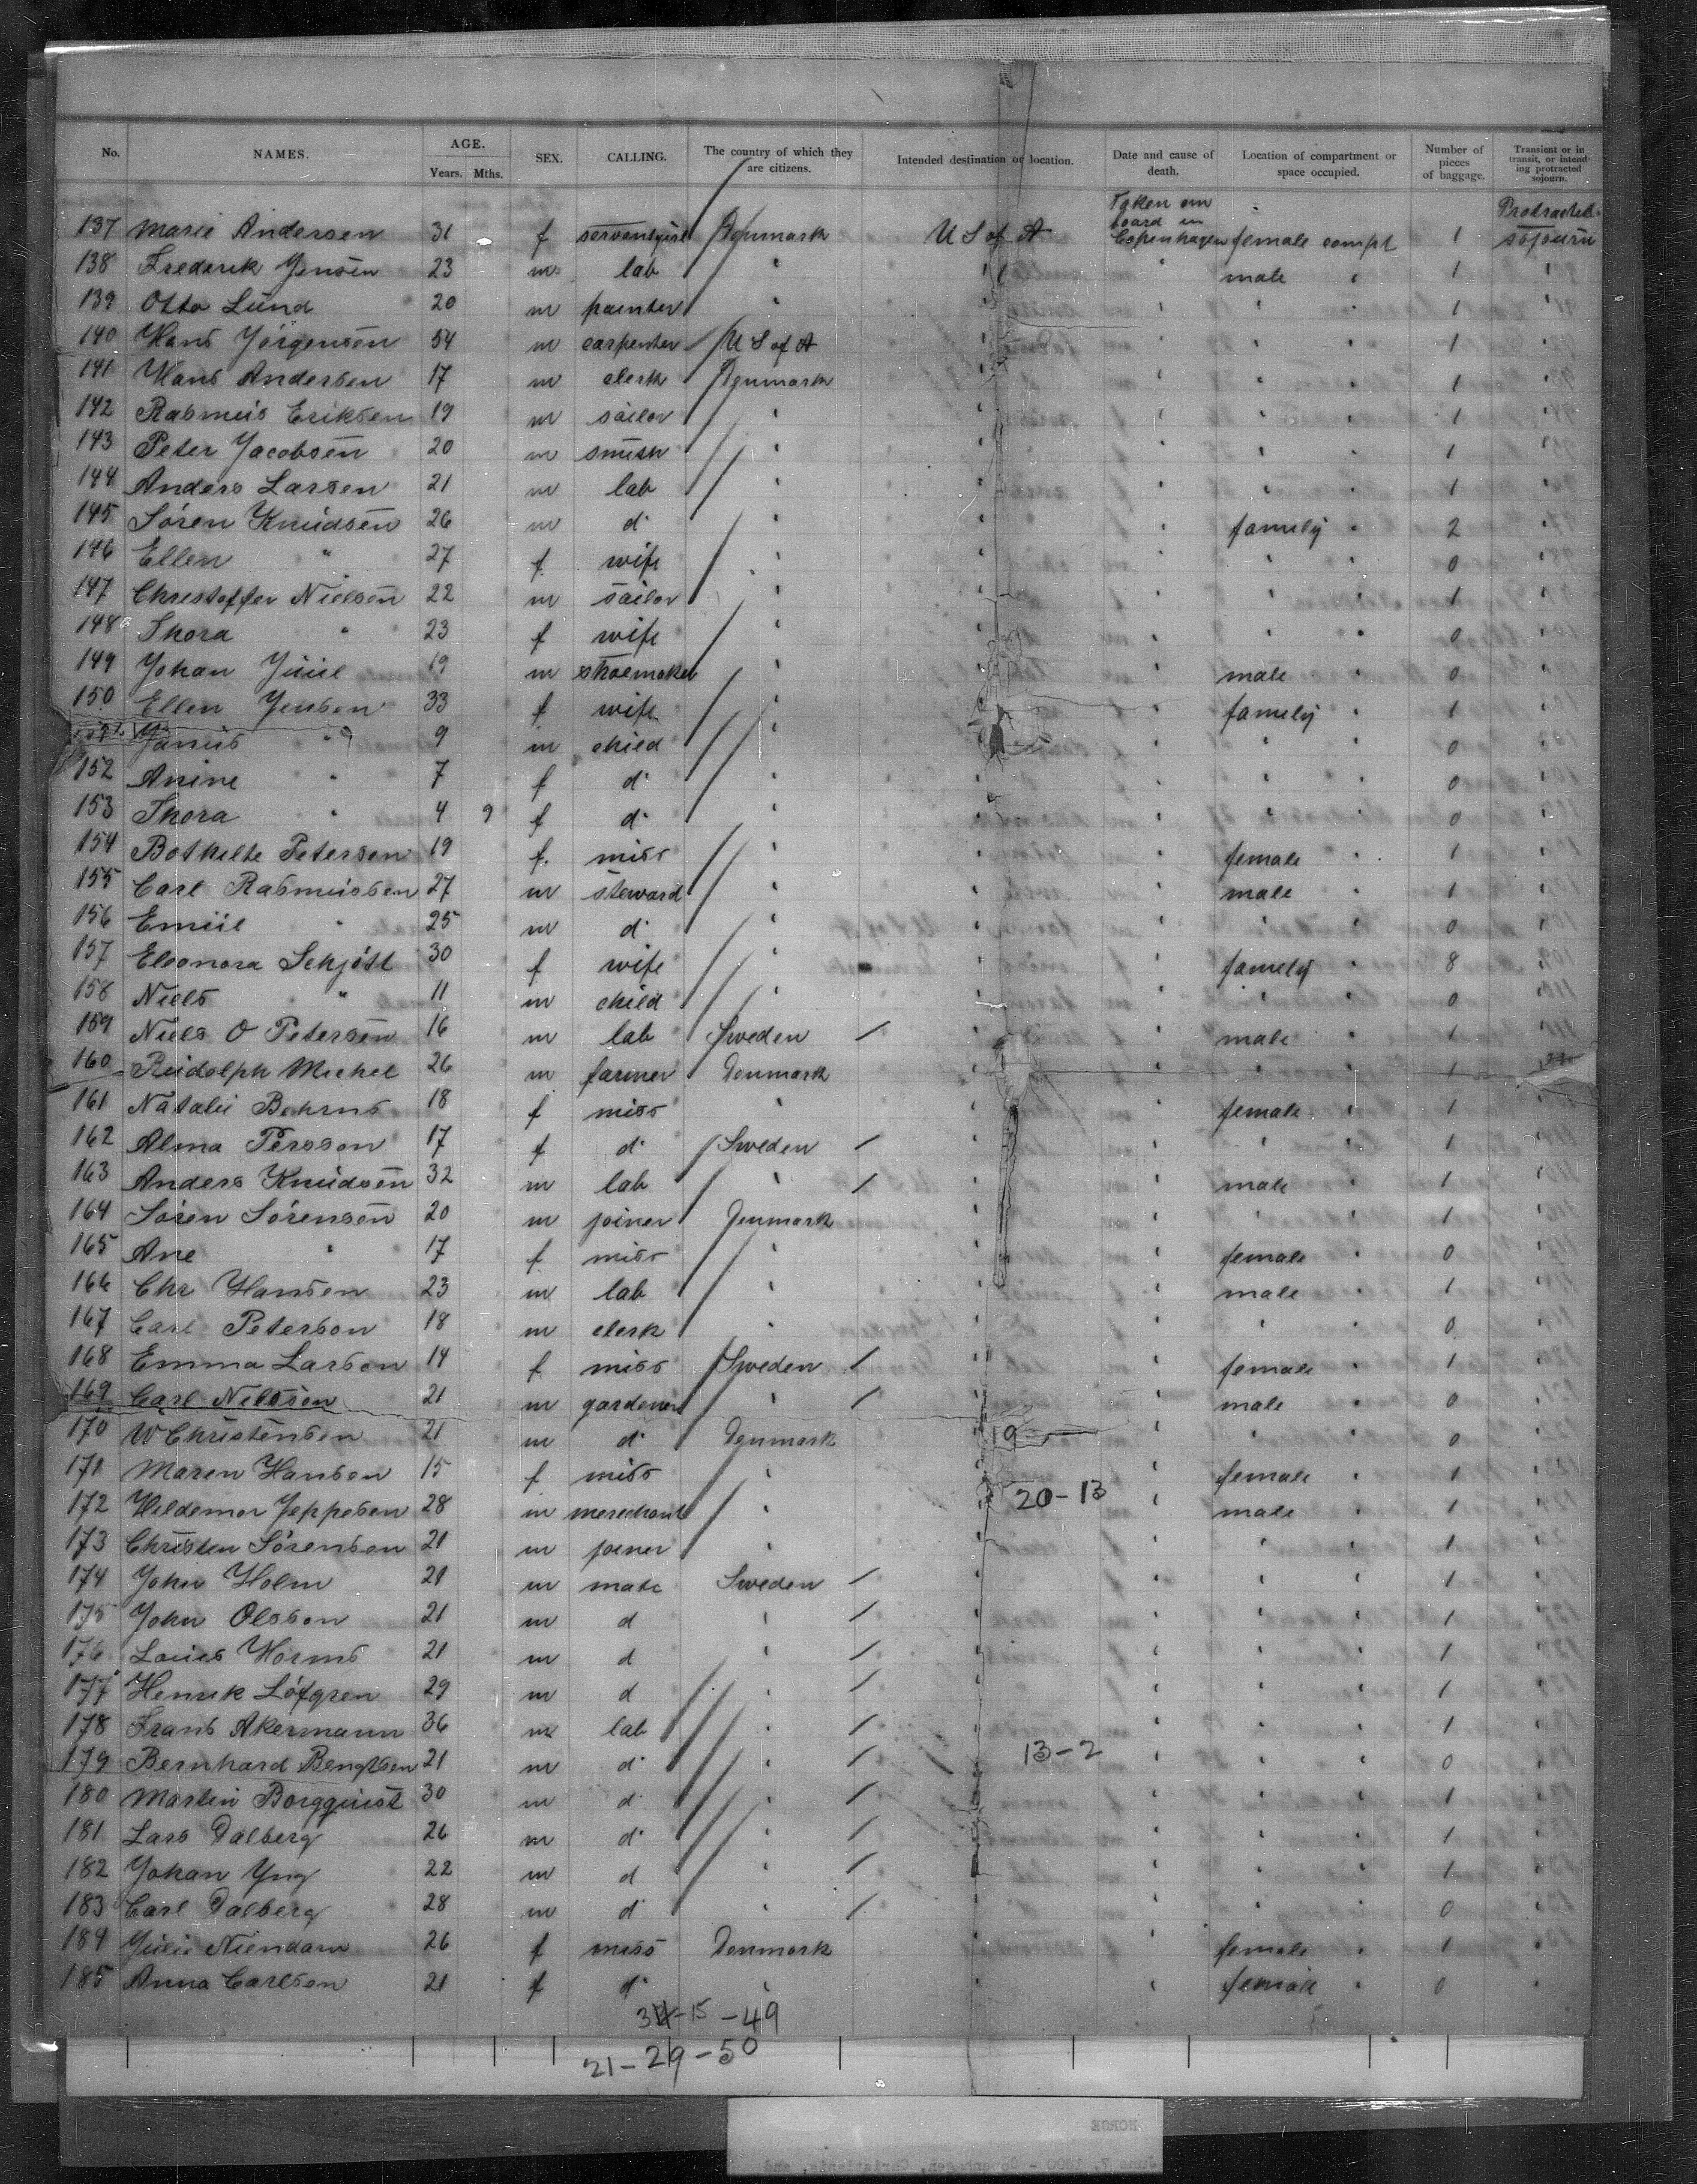 No. NAMES. AGE. Years. Mths. SEX. CALLING. The country of which they are citizens. Intended destination or location. Date and cause of death. Location of compartment or space occupied. Number of pieces of baggage. Transient or in transit, or intending protracted sojourn.
137 Marie Andersen 31 f servantgirl Denmark U S of A Taken on board in Copenhagen female compt 1 Protracted sojourn
138 Frederik Jensen 23 m lab " " " male " 1 "
139 Otto Lund 20 m painter " " " " " 1 "
140 Hans Jörgensen 54 m carpenter U S of A " " " " 1 "
141 Hans Andersen 17 m clerk Denmark " " " " 1 "
142 Rasmus Eriksen 19 m sailor " " " " " 1 "
143 Peter Jacobsen 20 m smith " " " " " 1 "
144 Anders Larsen 21 m lab " " " " " 1 "
145 Sören Knudsen 26 m do " " " famely " 2 "
146 Ellen " 27 f wife " " " " " 0 "
147 Christoffer Nielsen 22 m sailor " " " " " 1 "
148 Thora " 23 f wife " " " " " 0 "
149 Johan Juul 19 m shoemaker " " " male " 0 "
150 Ellen Jensen 33 f wife " " " famely " 1 "
151 Janus " 9 m child " " " " " 0 "
152 Anine " 7 f do " " " " " 0 "
153 Thora " 4 9 f do " " " " " 0 "
154 Bothilte Petersen 19 f miss " " " female " 1 "
155 Carl Rasmussen 27 m steward " " " male " 1 "
156 Emiil " 25 m do " " " " " 0 "
157 Eleonora Schjött 30 f wife " " " famely " 8 "
158 Niels " 11 m child " " " " " 0 "
159 Niels O Petersen 16 m lab Sweden " " male " 1 "
160 Rudolph Michel 26 m farmer Denmark " " " " 1 "
161 Natalie Behrns 18 f miss " " " female " 1 "
162 Alma Persson 17 f do Sweden " " " " 1 "
163 Anders Knudsen 32 m lab " " " male " 1 "
164 Sören Sörensen 20 m joiner Denmark " " " " 1 "
165 Ane " 17 f miss " " " female " 0 "
166 Chr Hansen 23 m lab " " " male " 1 "
167 Carl Peterson 18 m clerk " " " " " 0 "
168 Emma Larson 14 f miss Sweden " " female " 1 "
169 Carl Nilsson 21 m gardener " " " male " 0 "
170 W Christensen 21 m do Denmark 19 " " " 0 "
171 Maren Hansen 15 f miss " " " female " 1 "
172 Hildemor Jeppesen 28 m merchant " " 20-13 " male " 1 "
173 Christen Sörensen 21 m joiner " " " " " 1 "
174 John Holm 21 m mate Sweden " " " " 1 "
175 John Olsson 21 m d " " " " " 1 "
176 Louis Worms 21 m d " " " " " 1 "
177 Henrik Löfgren 29 m d " " " " " 1 "
178 Frans Akermann 36 m lab " " " " " 1 "
179 Bernhard Bengtsen 21 m do " " 13-2 " " " 0 "
180 Martin Borgquist 30 m do " " " " " 1 "
181 Lars Dalberg 26 m do " " " " " 1 "
182 Johan Yng 22 m d " " " " " 1 "
183 Carl Dalberg 28 m do " " " " " 0 "
184 Julie Niendam 26 f miss Denmark " " female " 1 "
185 Anna Carlsen 21 f do " " " female " 0 "
34-15-49
21-29-50